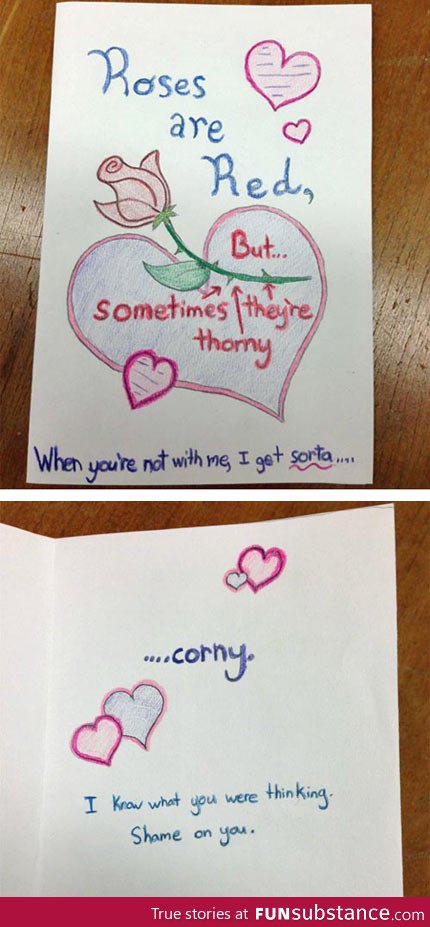 Roses
are
Red,
But...
sometimes they're
thorny
When you're not with me, I get sorta....
....corny.
I know what you were thinking.
Shame on you.
True stories at FUNsubstance.com